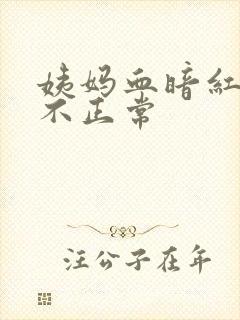 姨妈血暗红
不正常
汪公子在年